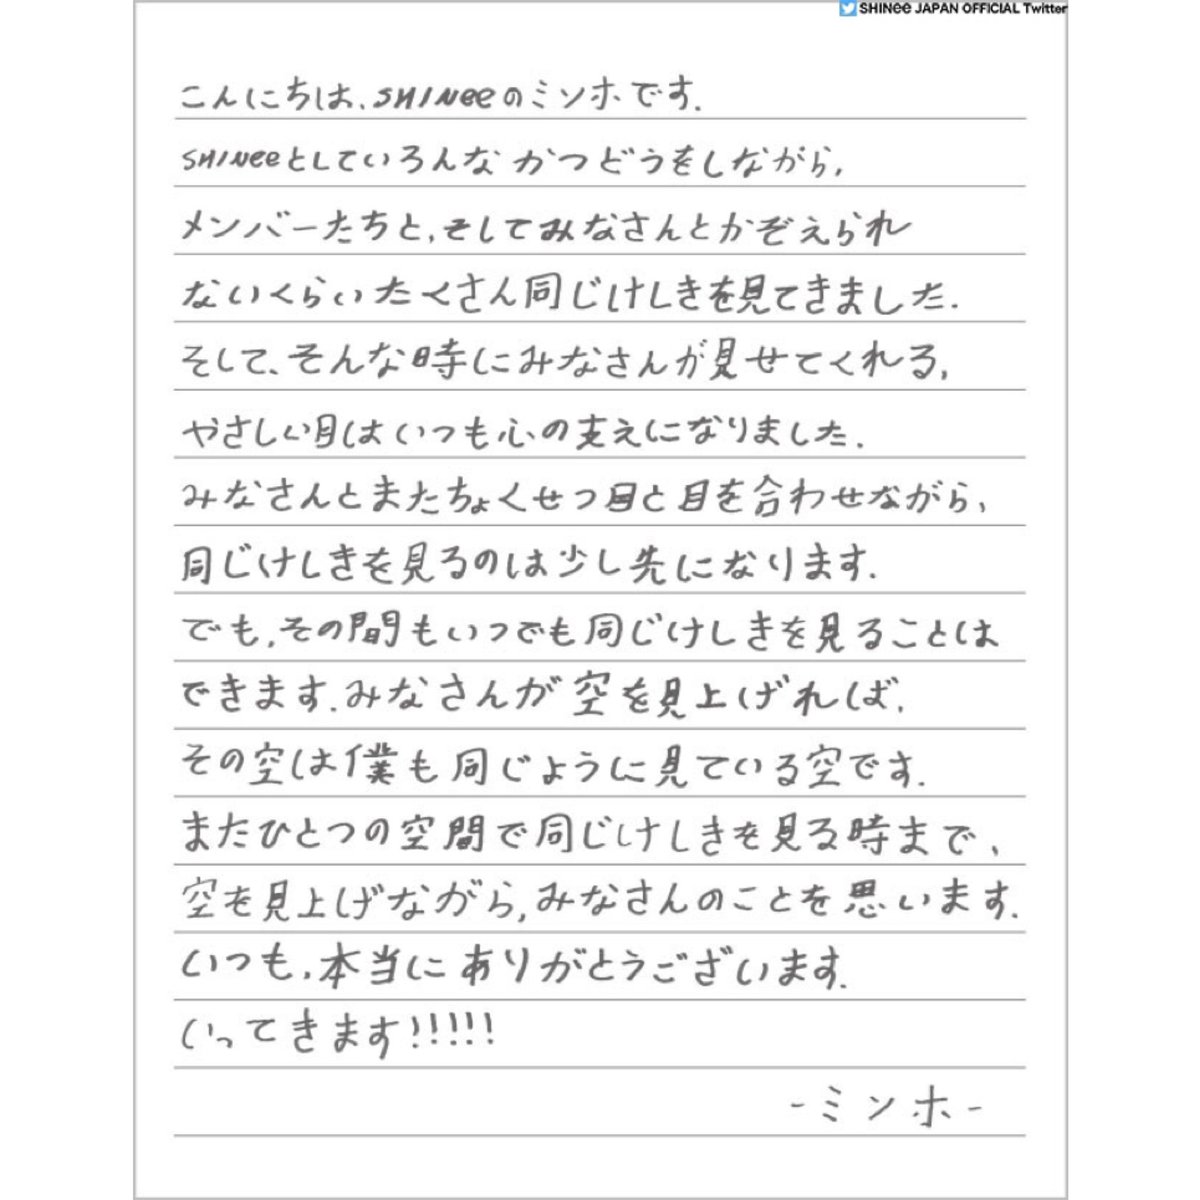 SHINee JAPAN OFFICIAL Twitter
こんにちは、SHINeeのミンホです.
SHINeeとしていろんな かつどうをしながら,
メンバーたちと,そしてみなさんとかぞえられ
ないくらいたくさん同じけしきを見てきました.
そして、そんな時にみなさんが見せてくれる,
やさしい目はいつも心の支えになりました.
みなさんとまたちょくせつ目と目を合わせながら、
同じけしきを見るのは少し先になります.
でも,その間もいつでも同じけしきを見ることは
できます.みなさんが空を見上げれば,
その空は僕も同じように見ている空です.
またひとつの空間で同じけしきを見る時まで、
空を見上げながら,みなさんのことを思います.
いつも,本当にありがとうございます.
いってきます!!!!!
-ミンホ-